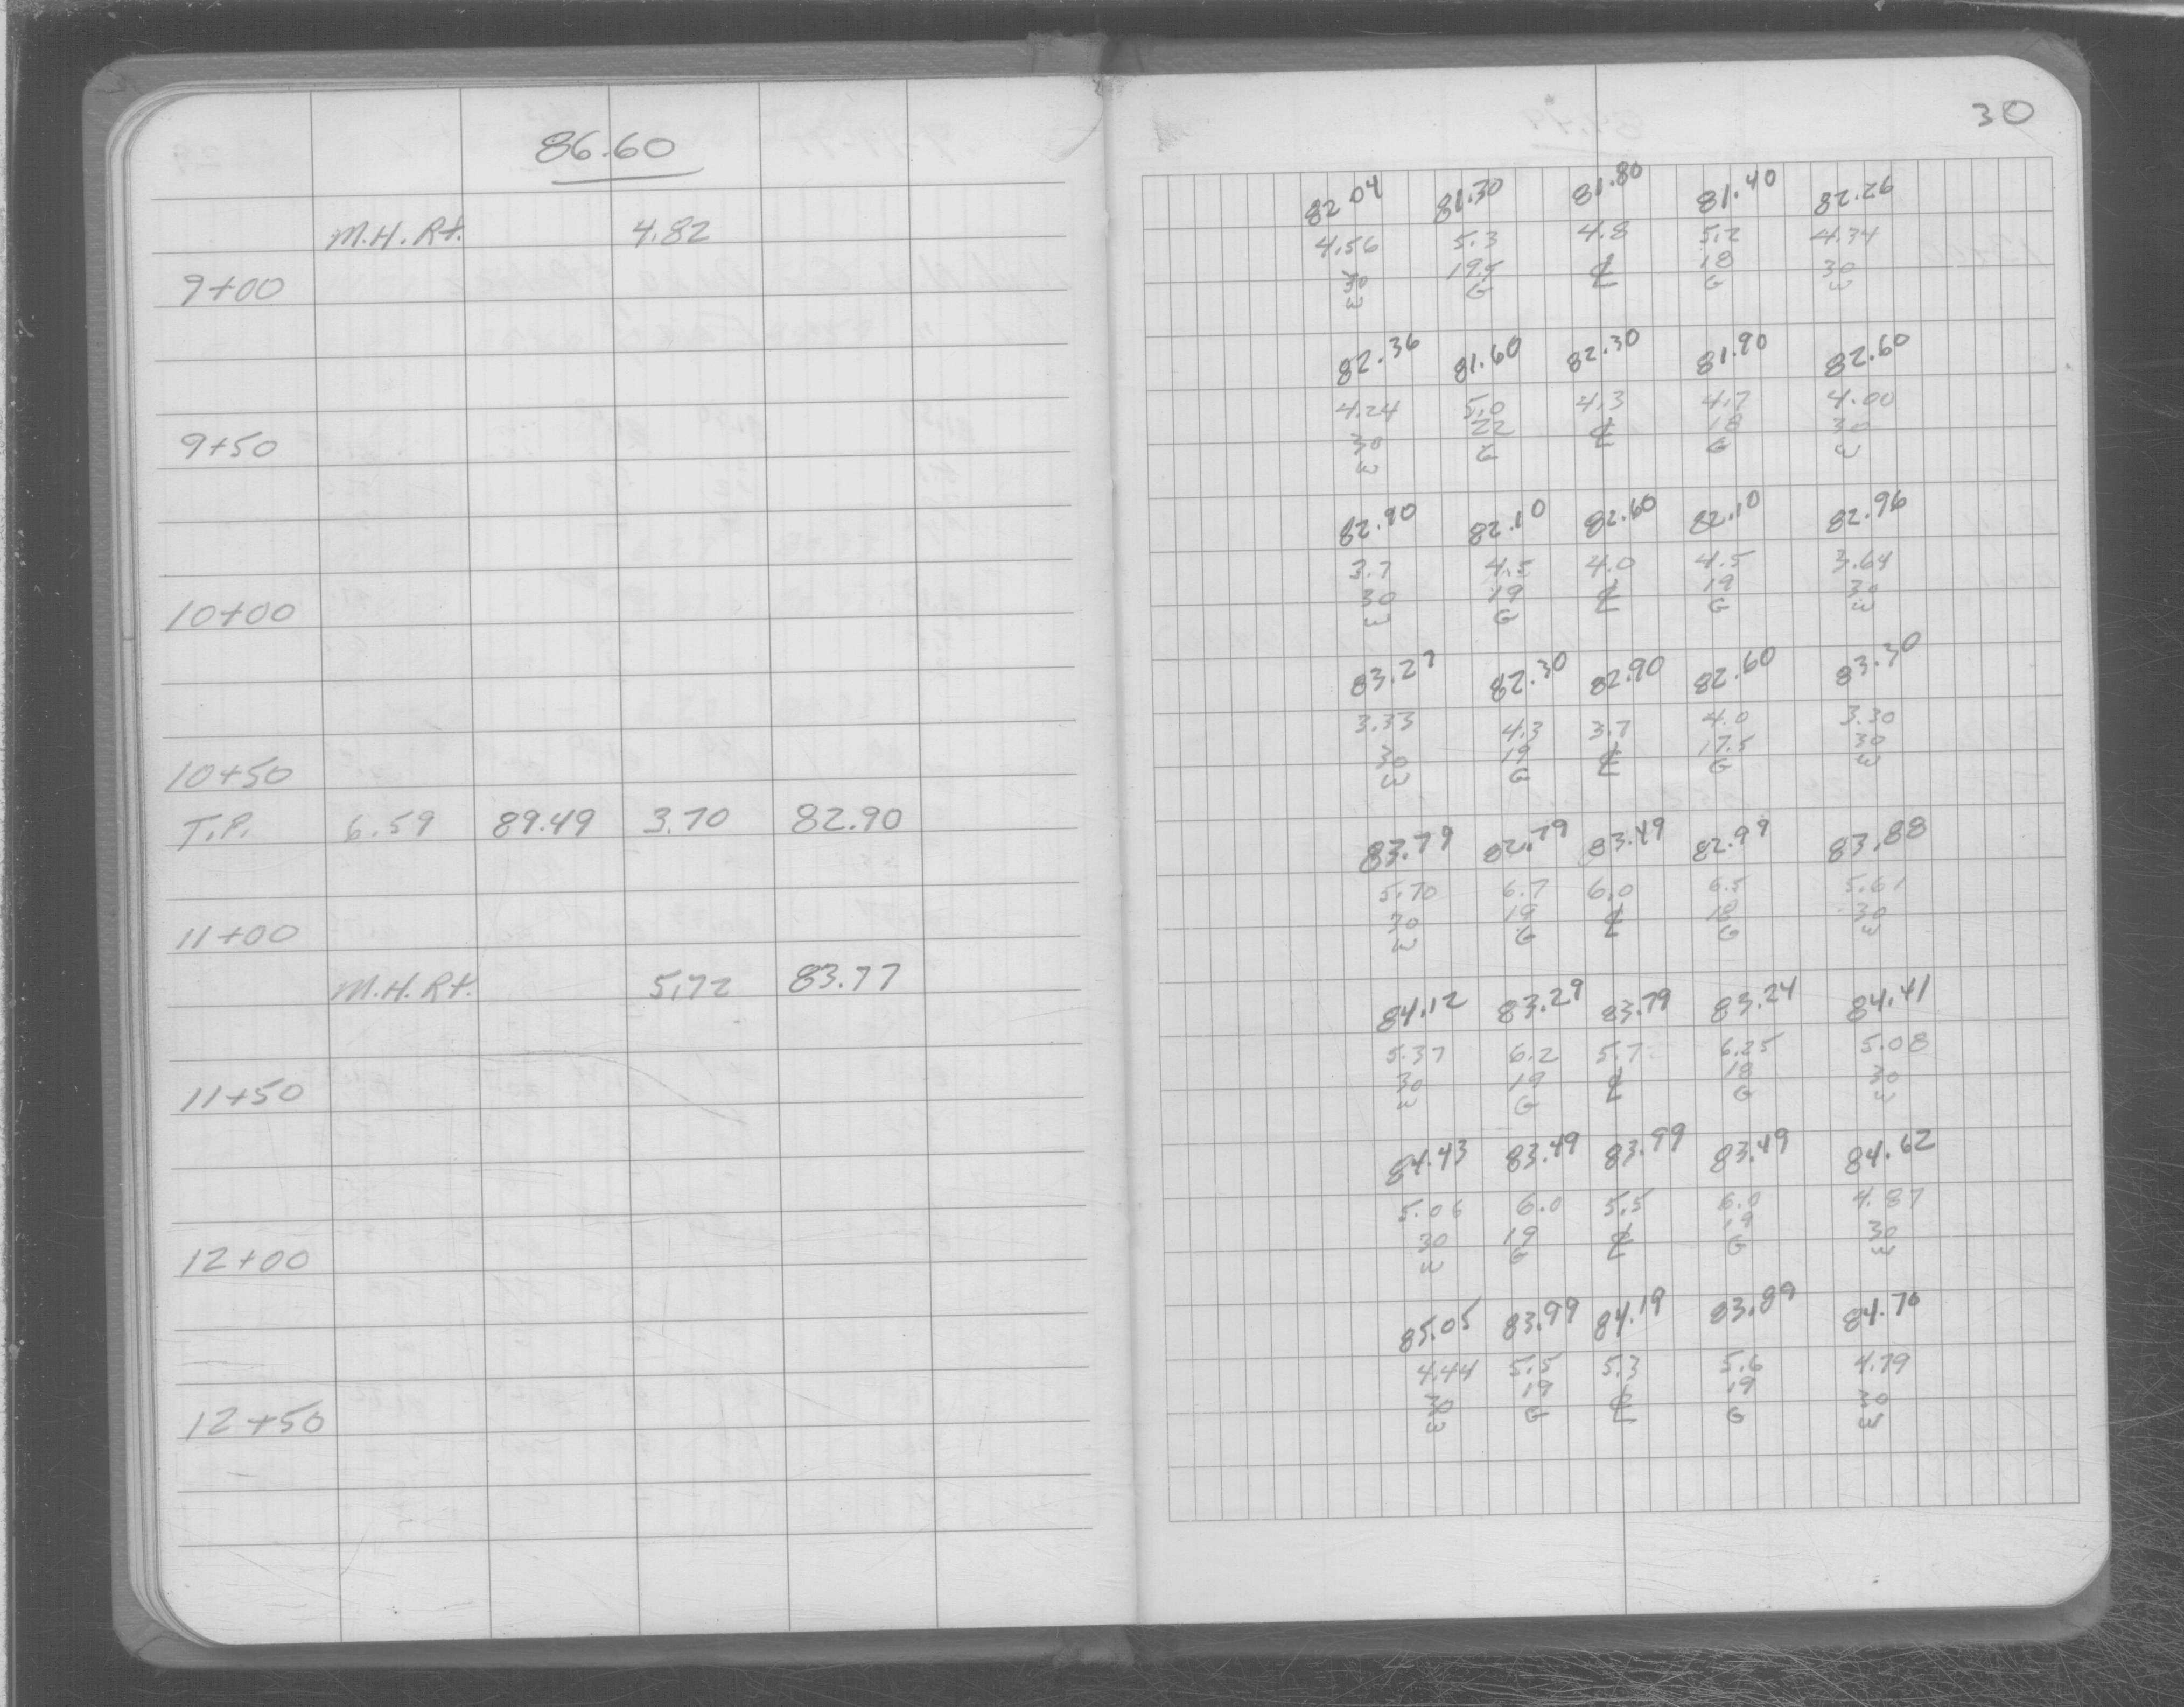 86.60
M.H. Rt. 4.82
9+00
9+50
10+00
10+50
T.P. 6.59 89.49 3.70 82.90
11+00
M.H. Rt. 5.72 83.77
11+50
12+00
12+50
30
82.04 81.30 81.80 81.40 82.26
4.56 5.3 4.8 5.2 4.34
30 19.5 ℄ 18 30
W G G W
82.36 81.60 82.30 81.90 82.60
4.24 5.0 4.3 4.7 4.00
30 22 ℄ 18 30
W G G W
82.90 82.10 82.60 82.10 82.96
3.7 4.5 4.0 4.5 3.64
30 19 ℄ 19 30
W G G W
83.27 82.30 82.90 82.60 83.30
3.33 4.3 3.7 4.0 3.30
30 19 ℄ 17.5 30
W G G W
83.79 82.79 83.49 82.99 83.88
5.70 6.7 6.0 6.5 5.61
30 19 ℄ 18 30
W G G W
84.12 83.29 83.79 83.24 84.41
5.37 6.2 5.7 6.25 5.08
30 19 ℄ 18 30
W G G W
84.43 83.49 83.99 83.49 84.62
5.06 6.0 5.5 6.0 4.87
30 19 ℄ 19 30
W G G W
85.05 83.99 84.19 83.89 84.70
4.44 5.5 5.3 5.6 4.79
30 19 ℄ 19 30
W G G W